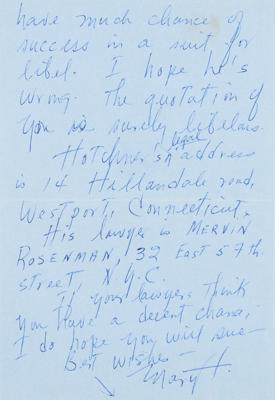 have much chance of
success in a suit for
libel. I hope he's
wrong. The quotation of
you is surely libelous.
legal
Hotchner's address
is 14 Hillandale road,
Westport, Connecticut.
His lawyer is MERVIN
ROSENMAN, 32 East 57th.
street, N.Y.C.
If your lawyers think
you have a decent chance,
I do hope you will sue—
Best wishes—
Mary H.